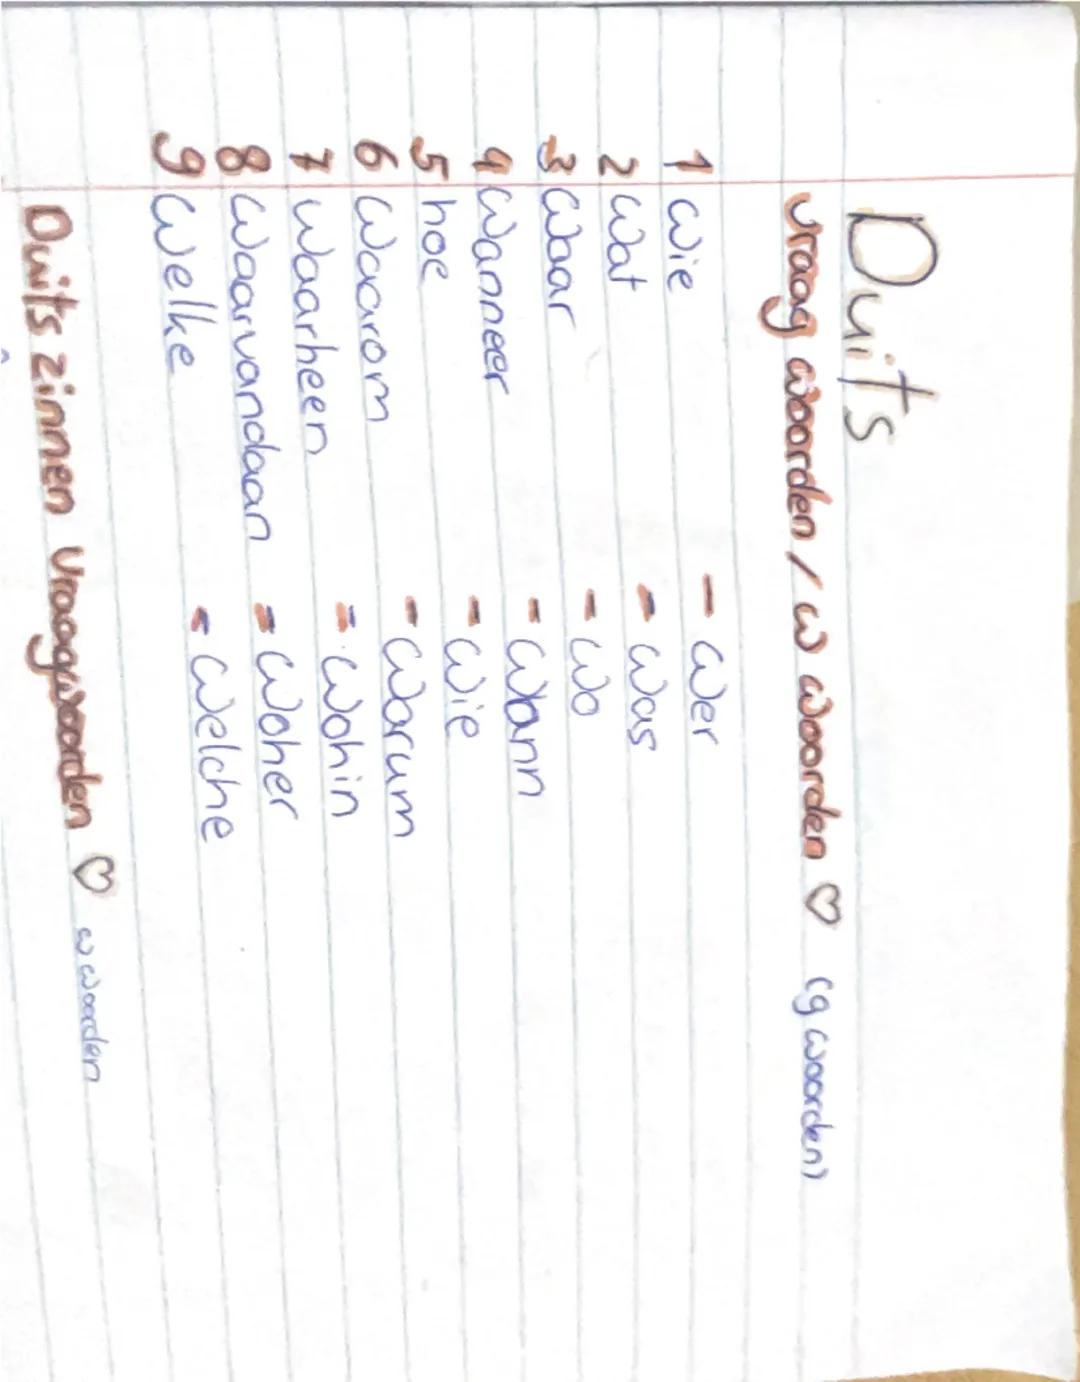 Duits
vraag woorden / w woorden ♡ (9 woorden)
1 Wie - Wer
2 Wat - Was
3 Waar - Wo
4 Wanneer - Wann
5 hoe - Wie
6 Waarom - Warum
7 Waarheen = Wohin
8 Waarvandaan = Woher
9 Welke = Welche
Duits zinnen vraagwoorden ♡ w woorden